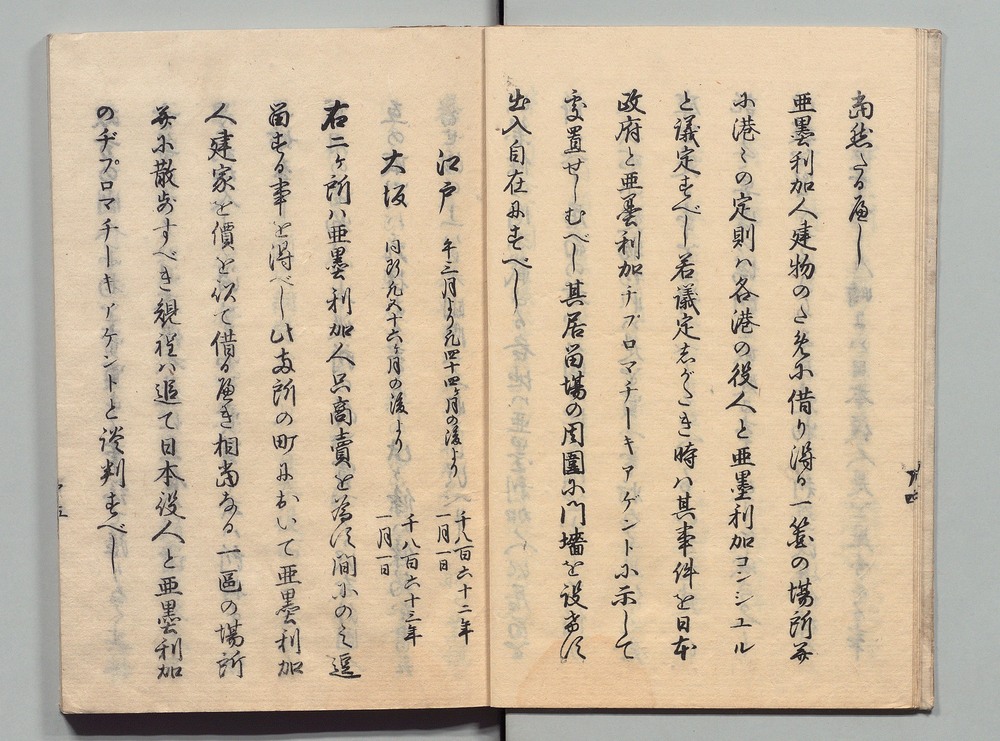 当然たるへし
亜墨利加人建物のため小借り得る一箇の場所并
小港々の定則ハ各港の役人と亜墨利加コンシユル
と議定すへし若議定しかたき時ハ其事件を日本
政府と亜墨利加チプロマチーキアゲント小示して
處置せしむへし其居留場の周圍小門墻を設けす
出入自在にすへし
江戸 午三月より凡四十四ヶ月の後より 千八百六十二年一月一日
大坂 同断凡五十六ヶ月の後より 千八百六十三年一月一日
右二ヶ所ハ亜墨利加人只商賣を為す間小のミ逗
留する事を得へし此両所の町において亜墨利加
人建家を價を以て借るへき相当なる一區の場所
并小散歩すへき規程ハ追て日本役人と亜墨利加
のヂプロマチーキアケントと談判すへし